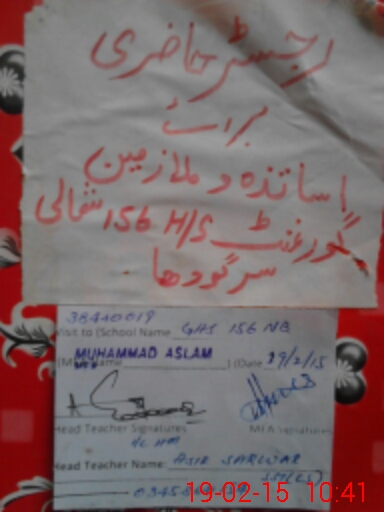 رجسٹر حاضری
برائے
اساتذہ و ملازمین
گورنمنٹ H/S 156 شمالی
سرگودھا
38440019
Visit to (School Name GHS 156 NB
MUHAMMAD ASLAM
) (Date 19/2/15
Head Teacher Signatures
MEA Signatures
Head Teacher Name: ASIF SARWAR
SST(CS)
19-02-15 10:41